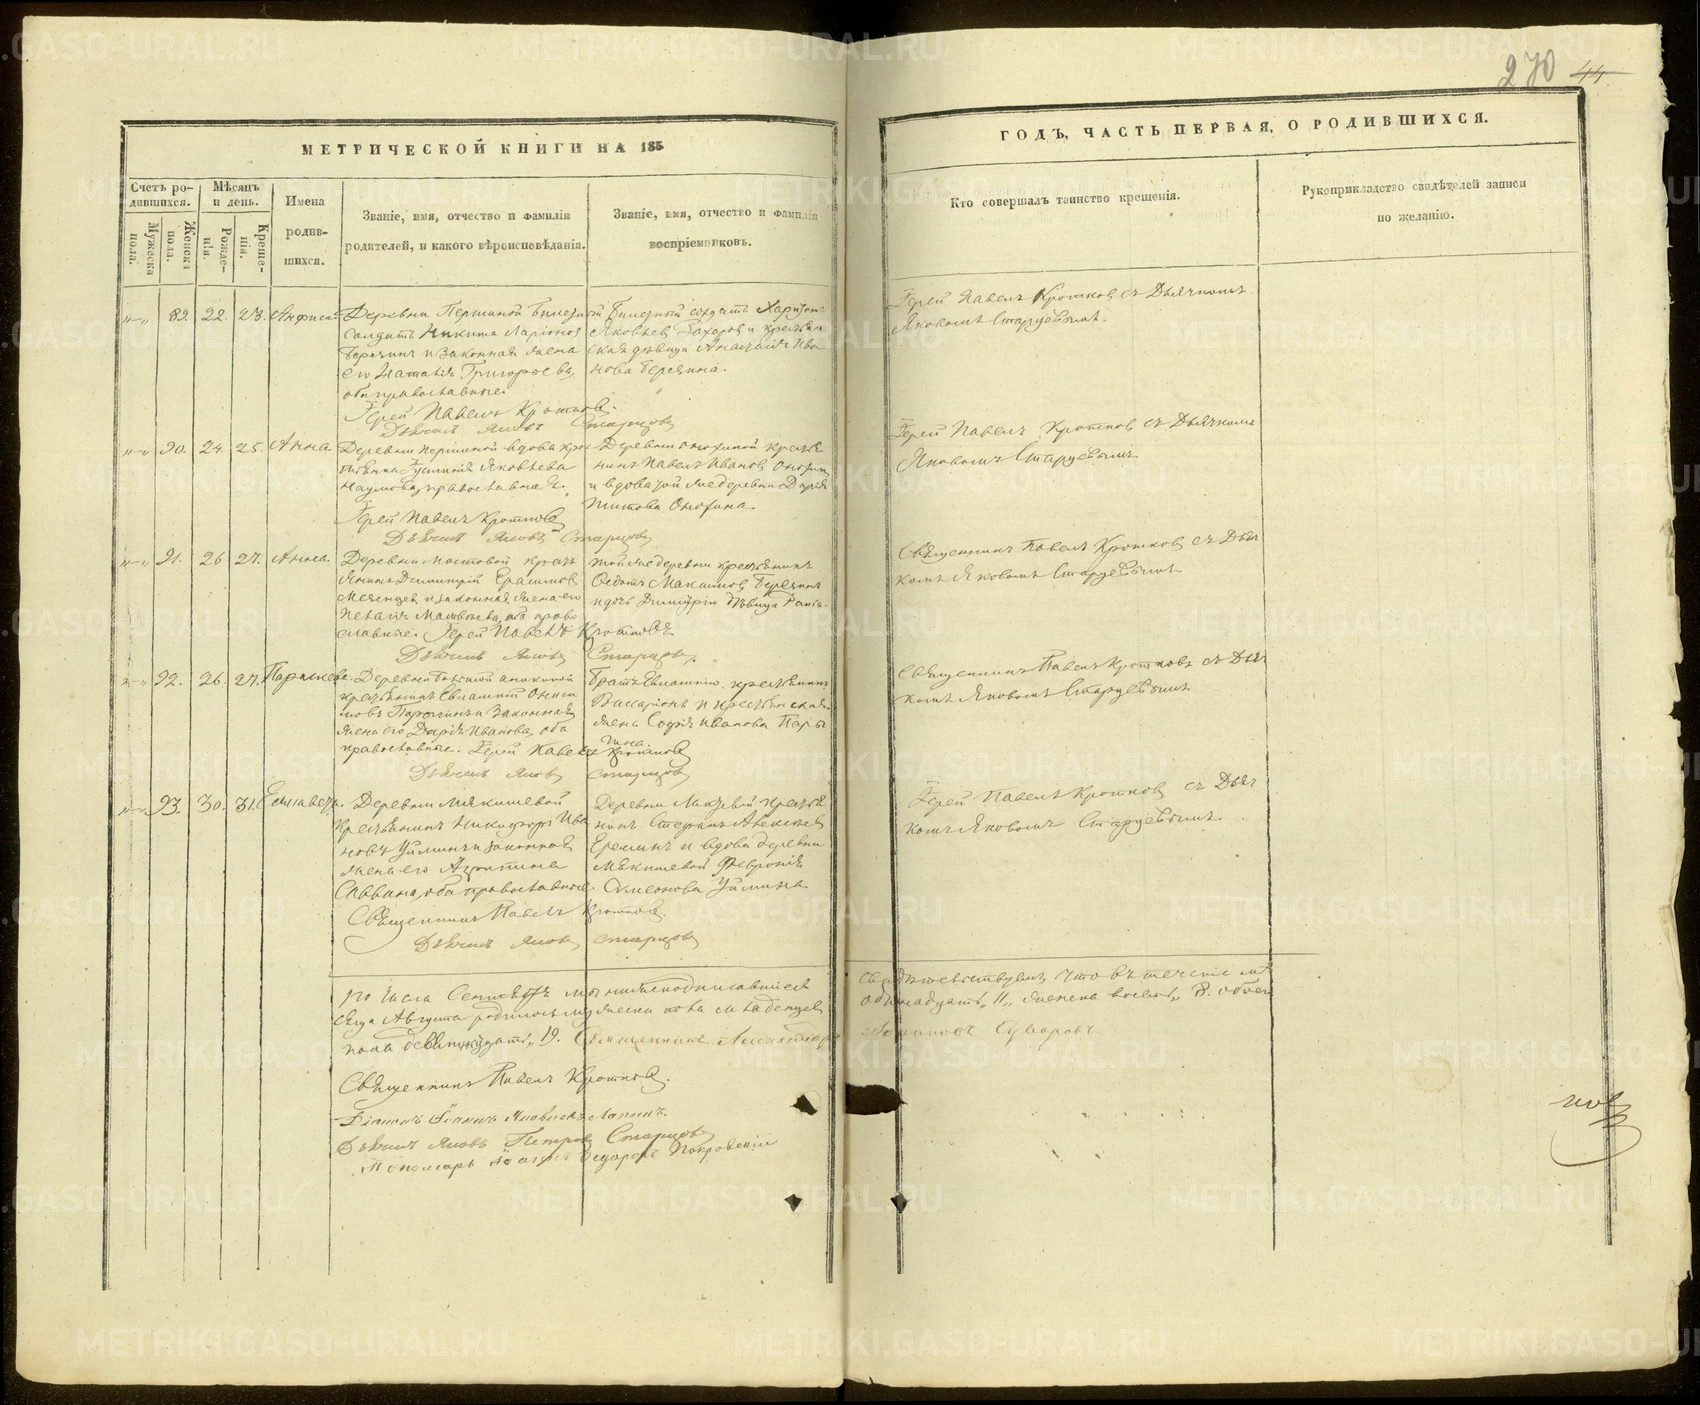 270 44.
МЕТРИЧЕСКОЙ КНИГИ НА 185
ГОДЪ, ЧАСТЬ ПЕРВАЯ, О РОДИВШИХСЯ.
Счетъ ро-
дившихся.
Мужеска
пола.
Женска
пола.
Мѣсяцъ
и день.
Рожде-
нія.
Креще-
нія.
Имена
родив-
шихся.
Званіе, имя, отчество и фамилія
родителей, и какого вѣроисповѣданія.
Званіе, имя, отчество и фамилія
воспріемниковъ.
Кто совершалъ таинство крещенія.
Рукоприкладство свидѣтелей записи
по желанію.
89. 22. 23. Анфиса
Деревни Першиной билетный
солдатъ Никита Ларіонов
Березинъ и законная жена
его Наталія Григорьева,
оба православные.
Іерей Павелъ Кротков.
Дьячекъ Яковъ Старцовъ
Билетный солдатъ Харитон
Яковлев Захаров и крестьян
ская дѣвица Анастасія Ива
нова Березина.
Іерей Павелъ Кротков съ Дьячкомъ
Яковомъ Старцевымъ.
90. 24. 25. Анна
Деревни Першиной вдова крес
тьянка Устинія Яковлева
Наумова, православная.
Іерей Павелъ Кротков
Дьячекъ Яковъ Старцовъ
Деревни Онохиной крестья
нинъ Павелъ Иванов Онохин
и вдова той же деревни Дарія
Титова Онохина.
Іерей Павелъ Кротков съ Дьячкомъ
Яковомъ Старцевымъ
91. 26 27. Анна
Деревни Мостовой кресть
янинъ Димитрій Ерасимов
и законная жена его
Пелагія Матвѣева, оба право
славные. Іерей Павелъ Кротковъ
Дьячекъ Яковъ Старцовъ.
той же деревни крестьянинъ
Ѳедотъ Максимов Березинъ
и дочь Димитрія дѣвица
Священникъ Павелъ Кротков съ Дья
комъ Яковомъ Старцевымъ
92. 26. 27. Параскева.
крестьянинъ Евлампій Ониси
мовъ и законная
жена его Дарія Иванова, оба
православные. Іерей Павелъ Кротков
Дьячекъ Яковъ Старцовъ
Братъ Евлампія крестьянинъ
Виссаріонъ и крестьянская
жена Софія Иванова Пары
гина.
Священникъ Павелъ Кротковъ съ Дья
комъ Яковомъ Старцевымъ
93. 30. 31. Елисавета.
Деревни Мякишевой
крестьянинъ Никифоръ Ива
новъ Уйминъ и законная
жена его Агрипина
Саввина, оба православные.
Священникъ Павелъ Кротков.
Дьячекъ Яковъ Старцовъ
нинъ Стефанъ Алексѣев
Ереминъ и вдова деревни
Мякишевой Февронія
Симеонова Уймина.
Іерей Павелъ Кротков съ Дья
комъ Яковомъ Старцевымъ.
го числа Сентября мы нижеподписавшіеся свидѣтельствуемъ, что въ теченіе мѣ
сяца Августа родилось мужеска пола младенцев одинадцать „11„ женска восемь „8. обоего
пола девятнадцать „19. Священникъ
Священникъ Павелъ Кротков.
Діаконъ Іоаннъ Яковлевъ Лапинъ.
Дьячекъ Яковъ Петровъ Старцовъ
Пономарь Іоаннъ Ѳедоровъ Покровскій
METRIKI.GASO-URAL.RU